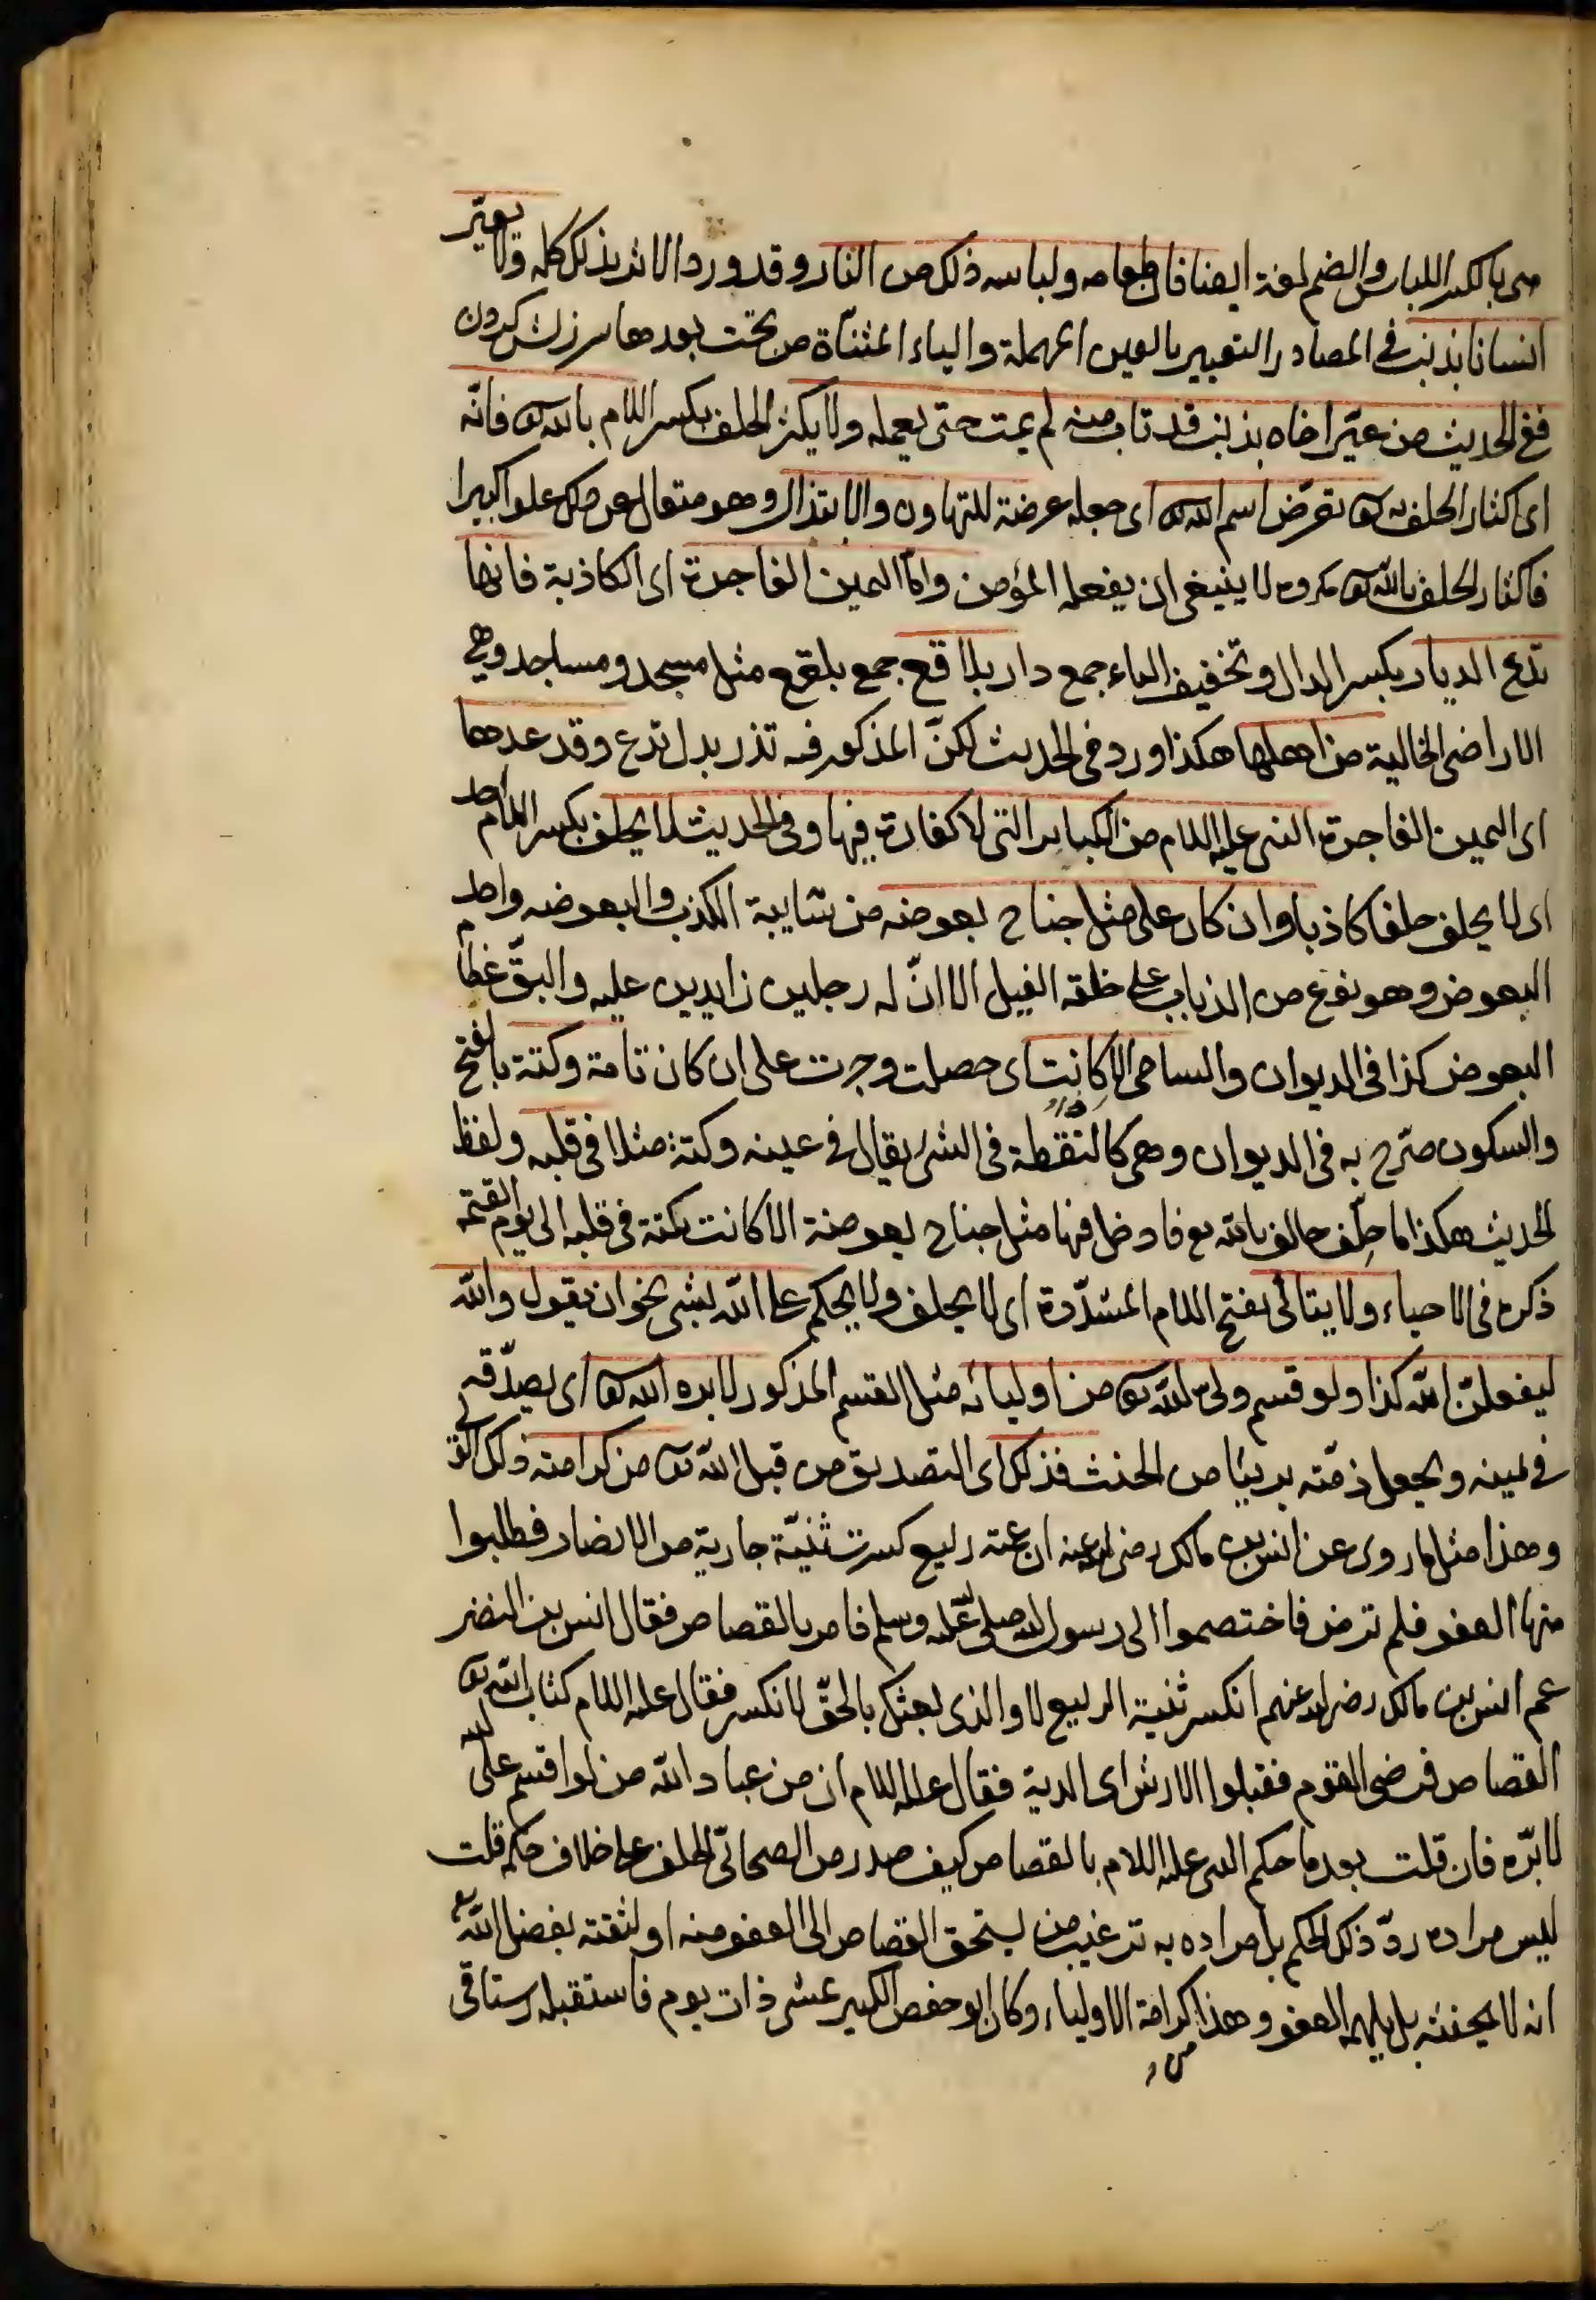 هى بالكسر اللباس والضم لغة ايضا فان طعامه ولباسه ذلك من النار وقد ورد الاثر بذلك كله ولا يعيّر
انسانا بذنب فى المصادر التعيير بالعين المهملة والياء المثنّاة من تحت بعدها سرزنش كردن
ففى الحديث من عيّر اخاه بذنب قد تاب منه لم يمت حتى يعمله ولا يكثر الحلف بكسر اللام بالله تع فانّه
اى اكثار الحلف به تع تعرّض اسم الله تع اى جعله عرضة للتهاون والابتذال وهو متعال عن ذلك علوا كبيرا
فاكثار الحلف بالله تع مكروه لا ينبغى ان يفعله المؤمن وامّا اليمين الفاجرة اى الكاذبة فانها
تدع الديار بكسر الدال وتخفيف الياء جمع دار بلاقع جمع بلقع مثل مسجد ومساجد وهى
الاراضى الخالية من اهلها هكذا ورد فى الحديث لكنّ المذكور فيه تذر بدل تدع وقد عدها
اى اليمين الفاجرة النبى عليه السلام من الكبائر التى لا كفارة فيها وفى الحديث لا يحلف بكسر اللام احد
اى لا يحلف حلفا كاذبا وان كان على مثل جناح بعوضه من شايبة الكذب والبعوضه واحد
البعوض وهو نوع من الذباب على خلقه الفيل الا انّ له رجلين زايدين عليه والبقّ عظام
البعوض كذا فى الديوان والسامى الا كانت اى حصلت وجرت على ان كان تامة وكتة بالفتح
والسكون صرّح به فى الديوان وهى كالنقطة فى الشئ يقال فى عينه وكتة مثلا فى قلبه ولفظ
الحديث هكذا ما حلف حالف بالله تع فادخل فيها مثل جناح بعوضة الا كانت نكتة فى قلبه الى يوم القيمة
ذكره فى الاحياء ولا يتالّى بفتح اللام المشدّدة اى لا يحلف ولا يحكم على الله بشئ نحو ان يقول والله
ليفعلنّ الله كذا ولو قسم ولىّ لله تع من اوليائه مثل القسم المذكور لابره الله تع اى يصدّقه
فى يمينه ويجعل ذمّته بريئا من الحنث فذلك اى التصديق من قبل الله تع من كرامته ذلك
وهذا مثل ما روى عن انس بن مالك رضى الله عنه ان عمته ربيع كسرت ثنيّة جارية من الانصار فطلبوا
منها العفو فلم ترض فاختصموا الى رسول الله صلى الله عليه وسلم فامر بالقصاص فقال انس بن النضر
عم انس بن مالك رضى الله عنهم انكسر ثنية الربيع لا والذى بعثك بالحقّ لا نكسر فقال عليه السلام كتاب الله تع
القصاص فرضى القوم فقبلوا الارش اى الدية فقال عليه السلام ان من عباد الله من لو اقسم على الله
لابرّه فان قلت بعد ما حكم النبى عليه السلام بالقصاص كيف صدر من الصحابّى الحلف على خلاف حكمه قلت
ليس مراده ردّ ذلك الحكم بل مراده به ترغيب من يستحق القصاص الى العفو منه او لثقته بفضل الله تع
انه لا يحنثه بل يلهمه العفو وهذا من كرامة الاولياء وكان ابو حفص الكبير عشى ذات يوم فاستقبله رستاقى